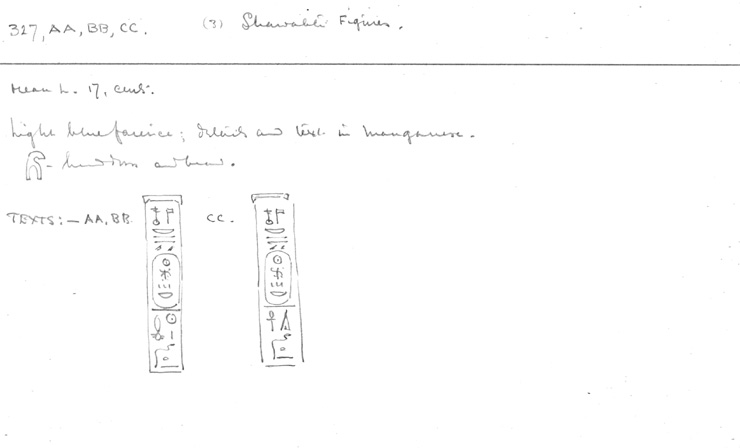 327, AA, BB, CC. (3) Shawabti Figures.
Mean L. 17, cent.
Light blue faience; details and text in manganese.
- headdress and beard.
TEXTS:— AA, BB. CC.